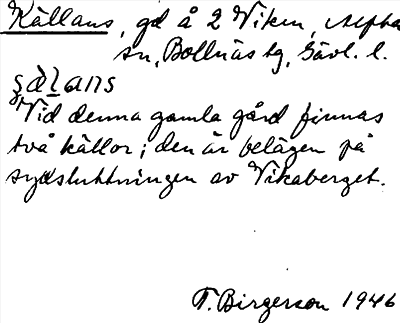 Källans, gd å 2 Viken, Alfta
sn, Bollnäs tg, Gävl. l.
şàl̠ans
Vid denna gamla gård finnas
två källor; den är belägen på
sydsluttningen av Vikaberget.
T. Birgerson 1946